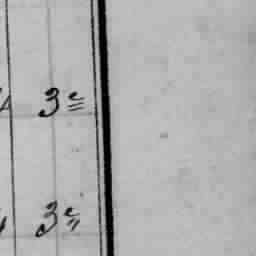 3e
3e